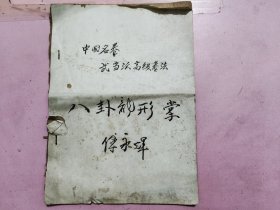 中国名拳
武当派高级拳法
八卦龙形掌
傅永辉